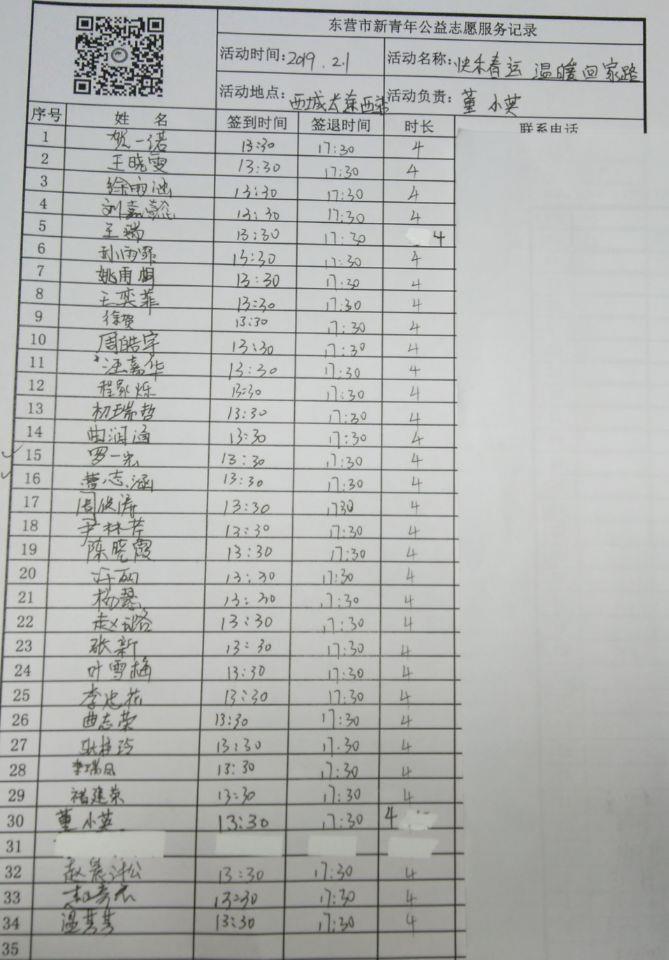 东营市新青年公益志愿服务记录
活动时间:2019.2.1 活动名称:快乐春运 温暖回家路
活动地点:西城 活动负责:董小英
序号 姓 名 签到时间 签退时间 时长 联系电话
1 贺一诺 13:30 17:30 4
2 王晓雯 13:30 17:30 4
3 徐雨涵 13:30 17:30 4
4 刘嘉懿 13:30 17:30 4
5 王瑞 13:30 17:30 4
6 13:30 17:30 4
7 13:30 17:30 4
8 王奕菲 13:30 17:30 4
9 徐贺 13:30 17:30 4
10 周皓宇 13:30 17:30 4
11 汪嘉华 13:30 17:30 4
12 13:30 17:30 4
13 初瑞哲 13:30 17:30 4
14 曲润涵 13:30 17:30 4
15 罗一宏 13:30 17:30 4
16 曹志涵 13:30 17:30 4
17 周俊涛 13:30 17:30 4
18 尹林芹 13:30 17:30 4
19 陈晓霞 13:30 17:30 4
20 13:30 17:30 4
21 杨慧 13:30 17:30 4
22 赵璐 13:30 17:30 4
23 张新 13:30 17:30 4
24 叶雪梅 13:30 17:30 4
25 李忠花 13:30 17:30 4
26 曲志荣 13:30 17:30 4
27 耿桂玲 13:30 17:30 4
28 13:30 17:30 4
29 褚建荣 13:30 17:30 4
30 董小英 13:30 17:30 4
31
32 13:30 17:30 4
33 13:30 17:30 4
34 温芳芳 13:30 17:30 4
35